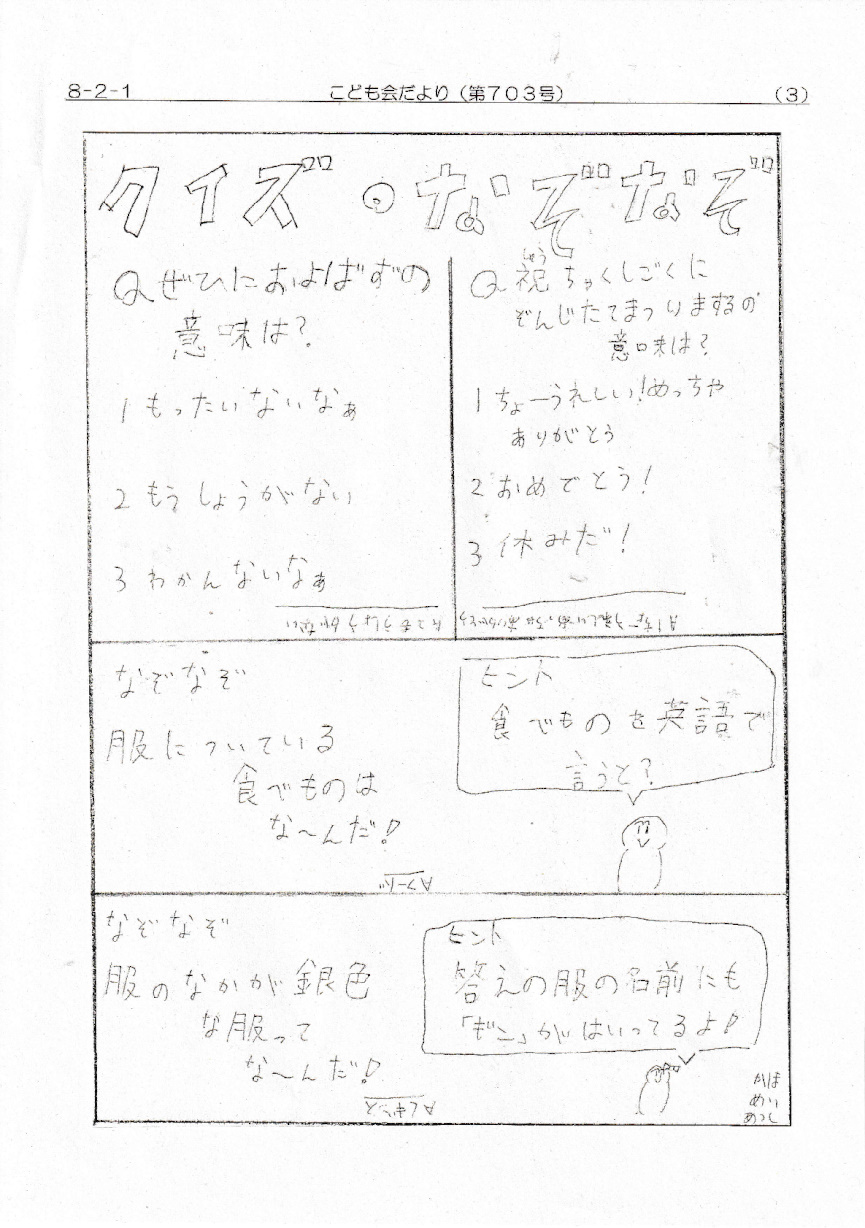 8-2-1
こども会だより（第703号）
(3)
クイズ・なぞなぞ
Q ぜひにおよばずの
意味は？
1 もったいないなぁ
2 もうしょうがない
3 わかんないなぁ
A 2 もうしょうがない
Q 祝ちゃくしごくに
しゅう
ぞんじたてまつりまするの
意味は？
1 ちょーうれしい！めっちゃ
ありがとう
2 おめでとう！
3 休みだ！
なぞなぞ
服についている
食べものは
な〜んだ！
Aフード
ヒント
食べものを英語で
言うと？
なぞなぞ
服のなかが銀色
な服って
な〜んだ！
ヒント
答えの服の名前にも
「ギン」がはいってるよ！
かほ
めい
あつし